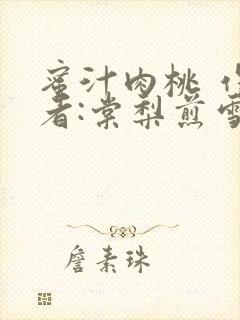 蜜汁肉桃
者:棠梨煎雪
詹素珠